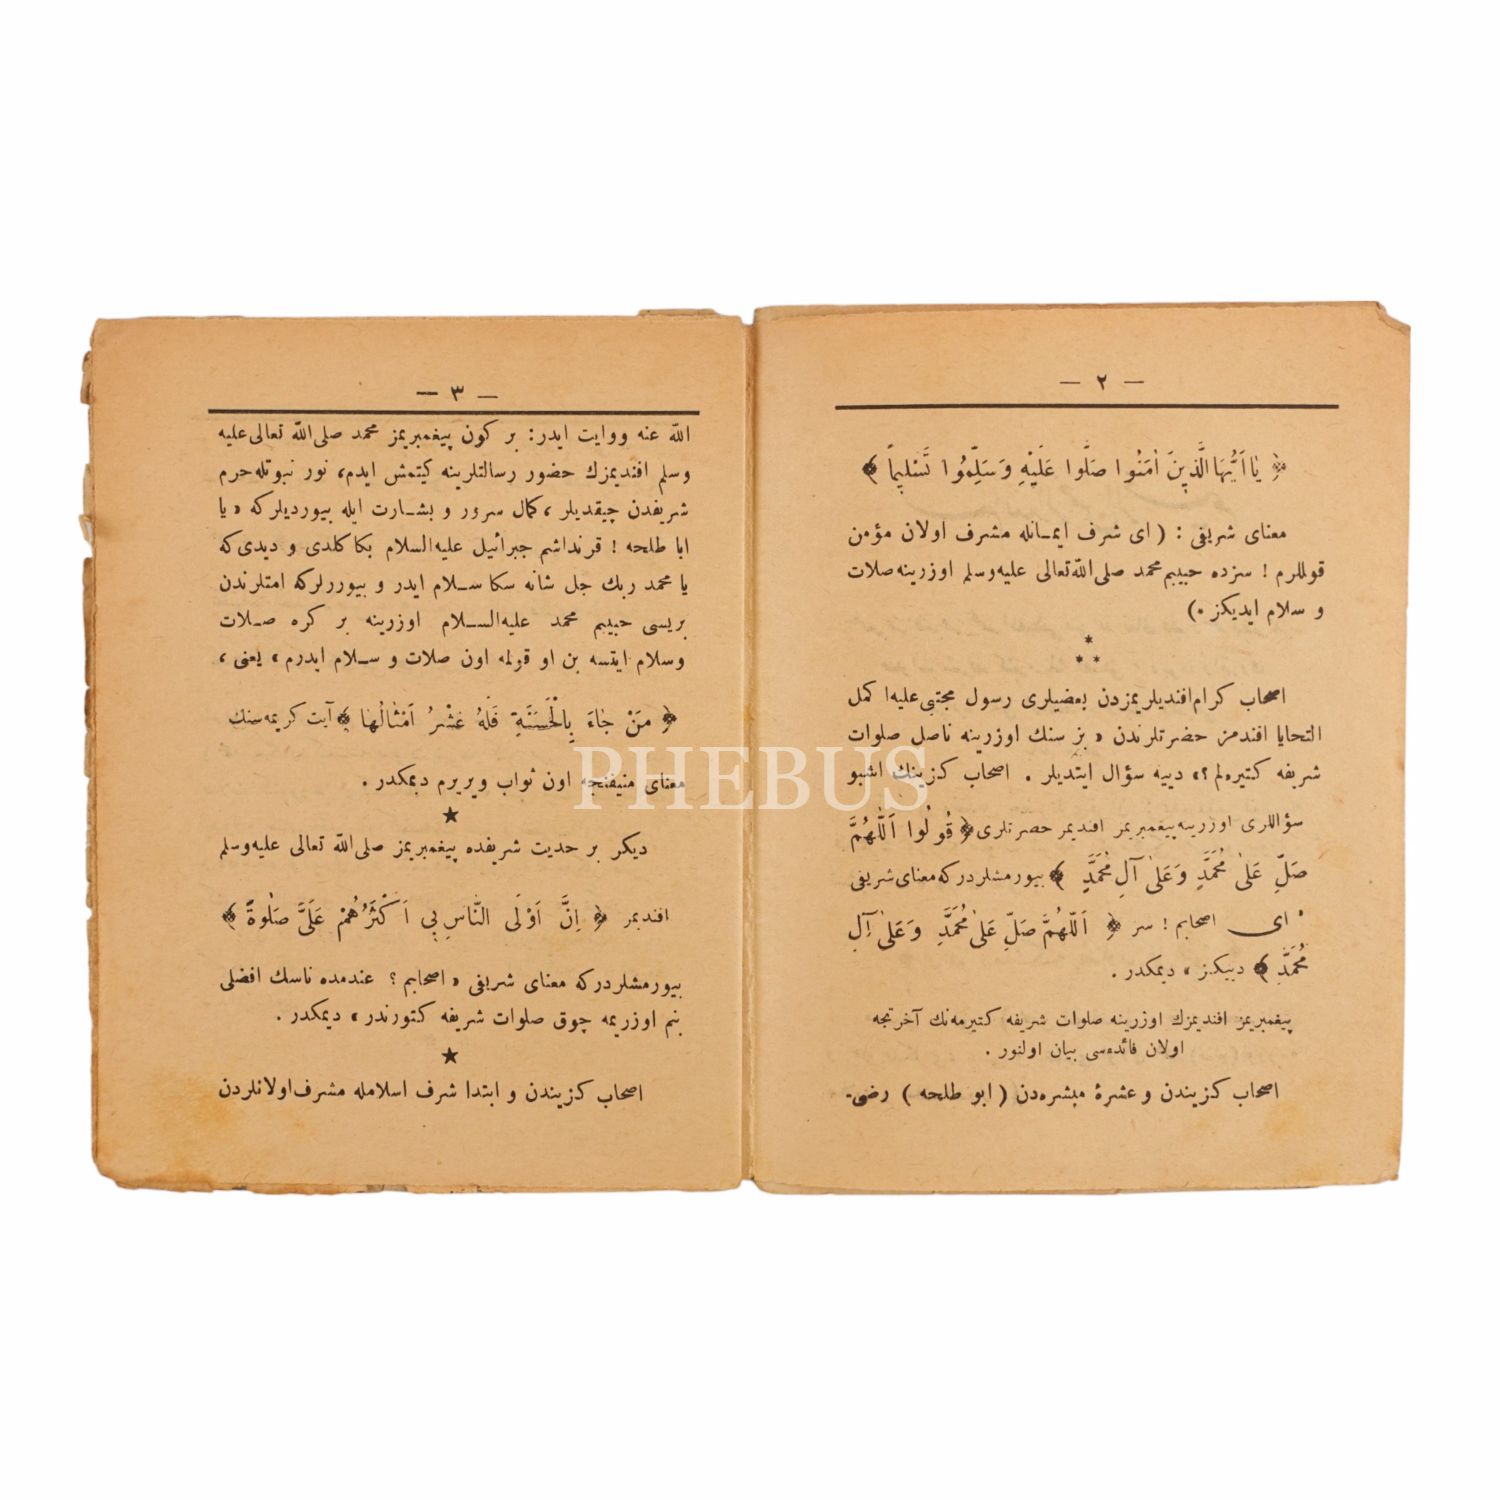 — ٢ —
﴿ يَا اَيُّهَا الَّذِينَ اٰمَنُوا صَلُّوا عَلَيْهِ وَسَلِّمُوا تَسْلِيماً ﴾
معنای شریفی : ( ای شرف ایمـانله مشرف اولان مؤمن
قوللرم ! سزده حبیبم محمد صلی‌الله‌تعالی علیه‌وسلم اوزرینه صلات
و سلام ایدیکز . )
*
* *
اصحاب کرام افندیلریمزدن بعضیلری رسول مجتبی علیه‌ا کمل
التحایا افندمز حضرتلرندن « بز سنك اوزرینه ناصل صلوات
شریفه کتیره‌لم ؟» دییه سؤال ایتدیلر . اصحاب کزینك اشبو
سؤاللری اوزرینه پیغمبریمز افندیمز حضرتلری ﴿ قُولُوا اَللّٰهُمَّ
صَلِّ عَلىٰ مُحَمَّدٍ وَعَلىٰ آلِ مُحَمَّدٍ ﴾ بیورمشلردرکه معنای شریفی
' ای اصحابم ! سز ﴿ اَللّٰهُمَّ صَلِّ عَلىٰ مُحَمَّدٍ وَعَلىٰ آلِ
مُحَمَّدٍ ﴾ دیيكز » دیمکدر .
پیغمبریمز افندیمزك اوزرینه صلوات شریفه کتیرمه‌نك آخرتجه
اولان فائده‌سی بیان اولنور .
اصحاب کزیندن و عشرۀ مبشره‌دن ( ابو طلحه ) رضی.
— ٣ —
الله عنه ووایت ایدر : بر کون پیغمبریمز محمد صلی‌الله تعالی علیه
وسلم افندیمزك حضور رسالتلرینه کیتمش ایدم، نور نبوتله حرم
شریفدن چیقدیلر ، کمال سرور و بشـارت ایله بیوردیلرکه « یا
ابا طلحه ! قرنداشم جبرائیل علیه‌السلام بکا کلدی و دیدی که
یا محمد ربك جل شانه سکا سـلام ایدر و بیوررلرکه امتلرندن
بریسی حبیبم محمد علیه‌السـلام اوزرینه بر کره صـلات
وسلام ایتسه بن او قولمه اون صلات و سـلام ایدرم ، یعنی ،
﴿ مَنْ جَاءَ بِالْحَسَنَةِ فَلَهُ عَشْرُ اَمْثَالُهَا ﴾ آیت کریمه‌سنك
معنای منیفنجه اون ثواب ویریرم دیمکدر .
★
دیکر بر حدیت شریفده پیغمبریمز صلی‌الله تعالی علیه‌وسلم
افندیمز ﴿ اِنَّ اَوْلَى النَّاسِ بِي اَكْثَرُهُمْ عَلَيَّ صَلٰوةً ﴾
بیورمشلردرکه معنای شریفی « اصحابم ؟ عندمده ناسك افضلی
بنم اوزریمه چوق صلوات شریفه کتورندر ، دیمکدر .
★
اصحاب کزیندن و ابتدا شرف اسلامله مشرف اولانلردن
PHEBUS